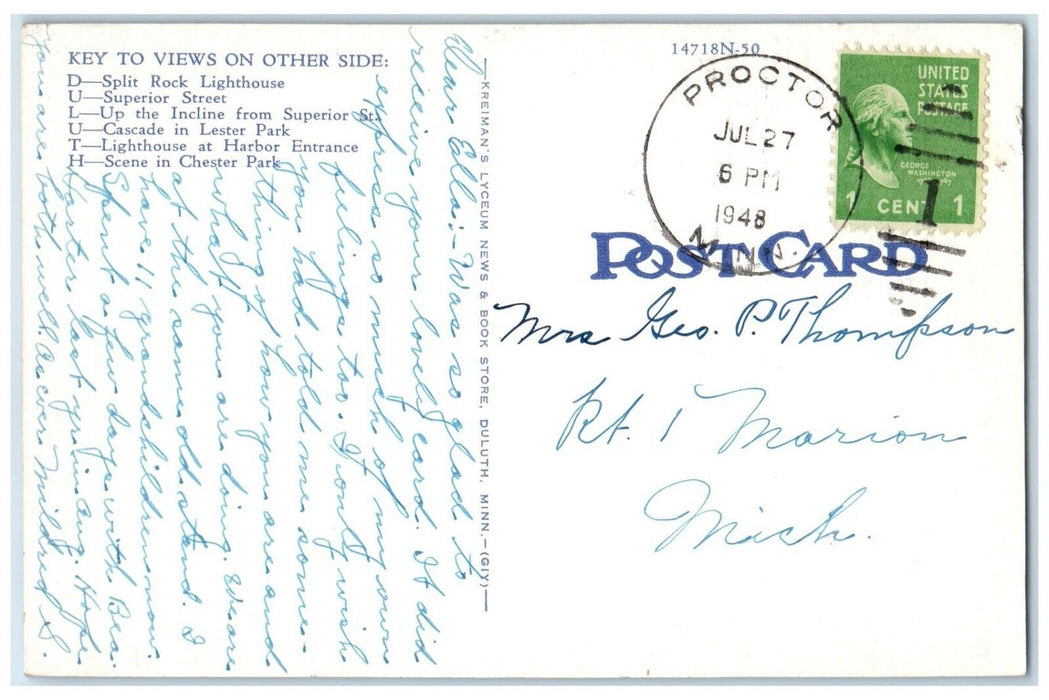 KEY TO VIEWS ON OTHER SIDE:
D—Split Rock Lighthouse
U—Superior Street
L—Up the Incline from Superior St.
U—Cascade in Lester Park
T—Lighthouse at Harbor Entrance
H—Scene in Chester Park
Dear Ella:- Was so glad to
receive your lovely card. It did
express so much of my own
feelings too. I only wish
you had told me some-
thing of how you are and
what you are doing. We are
at the same old stand. I
have 11 grandchildren now.
Spent a few days with Bea
Hunter last yr. in Aug. Hope
you are both well. As ever Mildred S.
—KREIMAN'S LYCEUM NEWS & BOOK STORE, DULUTH, MINN.—(GIY)—
14718N-50
PROCTOR
JUL 27
6 PM
1948
MINN.
UNITED
STATES
POSTAGE
GEORGE
WASHINGTON
1 CENT 1
1
POST CARD
Mrs Geo. P. Thompson
Rt. 1 Marion
Mich.